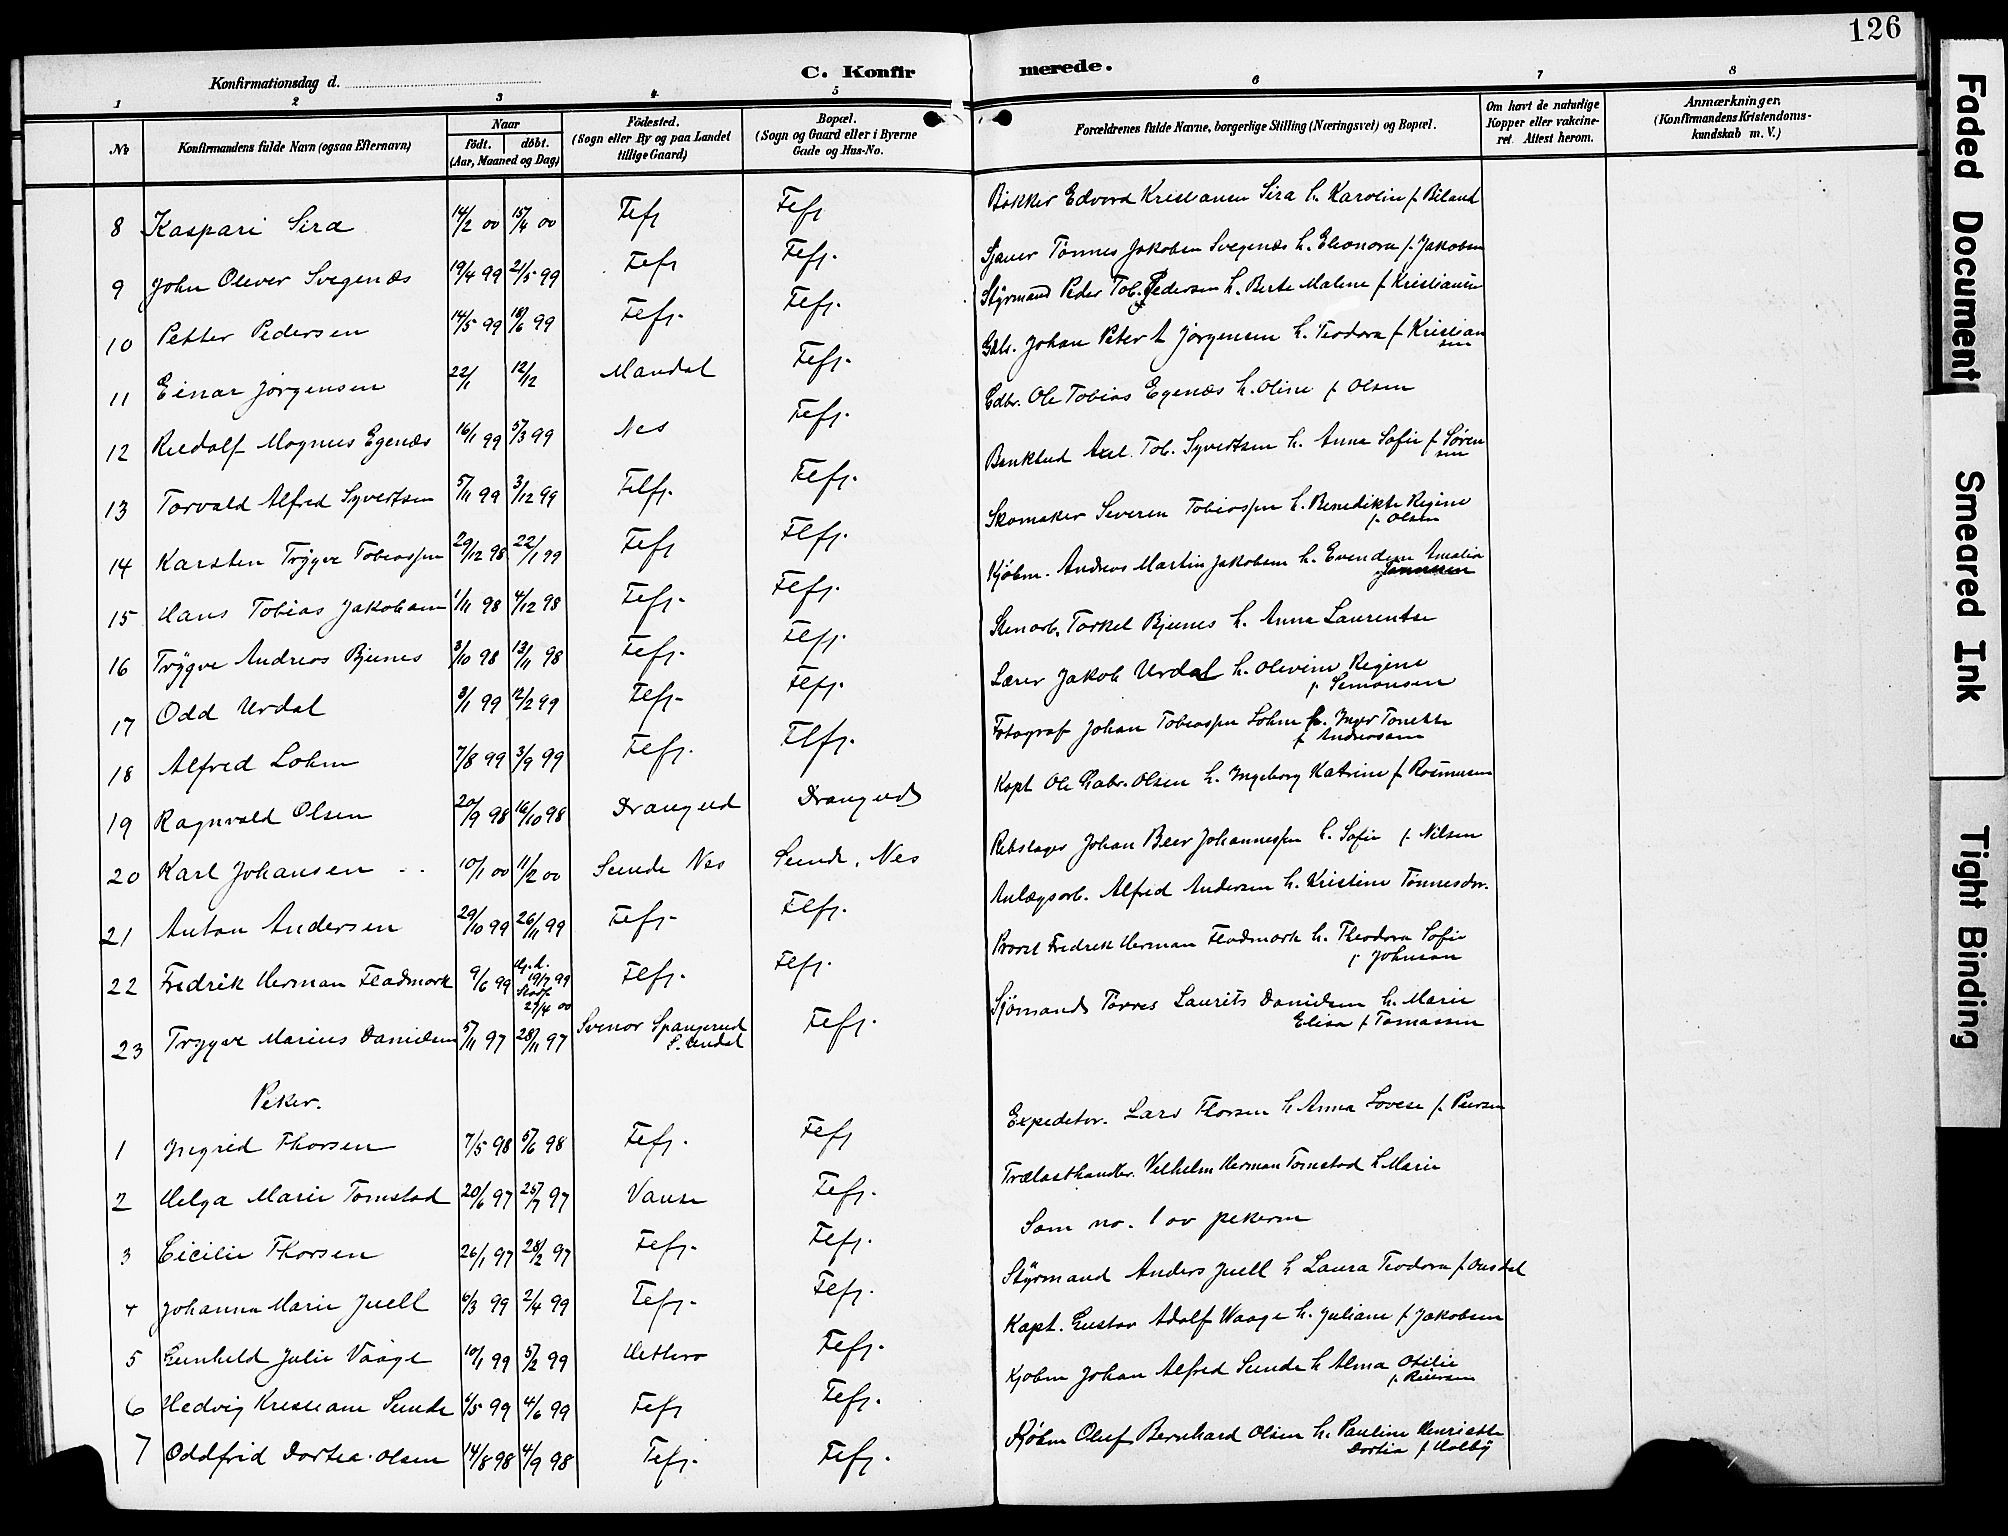 126
C. Konfirmerede.
Konfirmationsdag d.
1 2 3 4 5 6 7 8
No
Konfirmandens fulde Navn (ogsaa Efternavn)
Naar
födt. döbt.
(Aar, Maaned og Dag)
Födested.
(Sogn eller By og paa Landet
tillige Gaard)
Bopæl.
(Sogn og Gaard eller i Byerne
Gade og Hus-No.
Forældrenes fulde Navne, borgerlige Stilling (Næringsvei) og Bopæl.
Om havt de naturlige
Kopper eller vakcine-
ret. Attest herom.
Anmærkninger.
(Konfirmandens Kristendoms-
kundskab m. V.)
8 Kaspari Sira 14/2 00 15/4 00 Fefj Fefj Bøkker Edvard Kristiansen Sira h. Karolin f. Biland
9 John Olever Svegenæs 19/4 99 21/5 99 Fefj Fefj. Sjauer Tønnes Jakobsen Svegenæs h. Elionora f. Jakobsen
10 Petter Pedersen 14/5 99 18/6 99 Fefj. Fefj. Styrmand Peder Tob. Pedersen h. Berte Malene f Kristiansen
11 Einar Jørgensen 22/1 12/12 Mandal Fefj. Gdb. Johan Peter A Jørgensen h. Teodora f Kristian
sen
12 Rudolf Magnus Egenæs 16/1 99 5/3 99 Nes Fefj. Gdbr. Ole Tobias Egenæs h. Oline f Olsen
13 Torvald Alfred Syvertsen 5/11 99 3/12 99 Flefj. Flefj. Bankbud Axel Tob. Syvertsen h. Anna Sofie f Søren
sen
14 Karsten Trygve Tobiassen 29/12 98 22/1 99 Fefj Flefj. Skomaker Severin Tobiassen h. Benedikte Regine
f. Olsen
15 Hans Tobias Jakobsen 1/11 98 4/12 98 Fefj. Flefj. Kjøbm. Andreas Martin Jakobsen h. Amalia
16 Trygve Andreas Bjunes 3/10 98 13/11 98 Fefj. Flefj. Stenarb. Torkel Bjunes h. Anna Laurentse
17 Odd Urdal 3/1 99 12/2 99 Flefj. Flefj. Lærer Jakob Urdal h. Olevine Regine
f. Simonsen
18 Alfred Lohm 7/8 99 3/9 99 Flefj. Flefj. Fotograf Johan Tobiassen Lohm h. Inger Tonette
f Andreassen
19 Ragnvald Olsen 20/9 98 16/10 98 Drangeid Drangeid Kapt Ole Gabr. Olsen h. Ingeborg Katrine f. Rasmussen
20 Karl Johansen 10/1 00 11/2 00 Sunde Nes Sunde, Nes Rebslager Johan Beer Johannessen h. Sofie f. Nilsen
21 Anton Andersen 29/10 99 26/11 99 Fefj. Flefj. Anlægsarb. Alfred Andersen h. Kristine Tønnesdtr.
22 Fredrik Herman Fladmork 9/6 99 Hj. d. 19/7 99 Stadf. 29/4 00 Flefj. Flefj. Provst Fredrik Herman Fladmork h. Theodora Sofie
f Johnson
23 Trygve Marius Danielsen 5/11 97 28/11 97 Svinør Spangereid
S. Undal Fefj. Sjømand Tørres Laurits Danielsen h. Marie
Elisa f Tomassen
Piker.
1 Ingrid Thorsen 7/5 98 5/6 98 Fefj. Fefj Expeditør. Lars Thorsen h Anna Lovise f. Peersen
2 Helga Marie Tomstad 20/6 97 25/7 97 Vanse Fefj. Trælasthandler. Vilhelm Herman Tomstad h Marie
3 Cicilie Thorsen 26/1 97 28/2 97 Fefj. Fefj. Som no. 1 av pikerne
4 Johanna Marie Juell 6/3 99 2/4 99 Fefj. Flefj. Styrmand Anders Juell h Laura Teodora f. Ousdal
5 Gunhild Julie Vaage 10/1 99 5/2 99 Hitterø Fefj. Kapt. Gustav Adolf Waage h. Juliane f Jakobsen
6 Hedvig Kristiane Sunde 6/5 99 4/6 99 Fefj Fefj. Kjøbm Johan Alfred Sunde h Alma Otilie
f. Reiersen
7 Oddfrid Dortea Olsen 14/8 98 4/9 98 Fefj. Flefj. Kjøbm Oluf Bernhard Olsen h. Pauline Henriette
Dortia f Holby
Faded Document
Smeared Ink
Tight Binding